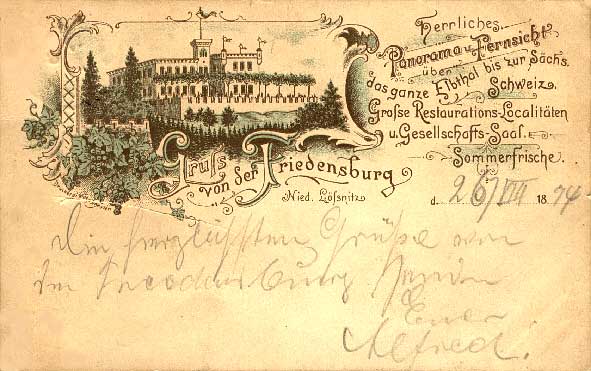 Herrliches
Panorama u. Fernsicht
über
das ganze Elbthal bis zur Sächs.
Schweiz.
Große Restaurations-Localitäten
u. Gesellschafts-Saal.
Sommerfrische.
Gruss
von der Friedensburg
Nied. Lößnitz
d. 26/VIII 1894
Die herzlichsten Grüße von
der Friedensburg senden
Euer
Alfred.